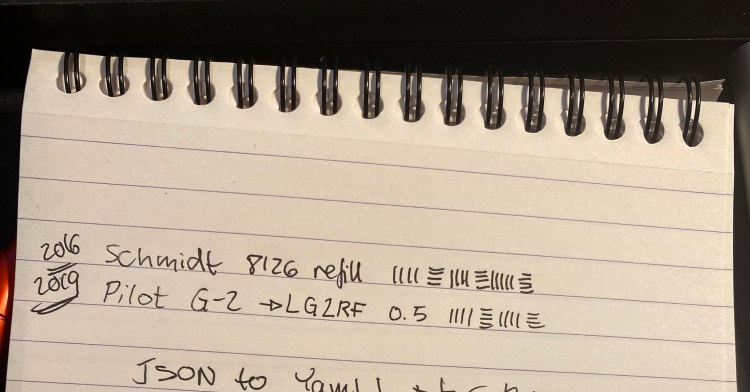 2016 Schmidt 8126 refill
2019 Pilot G-2 → LG2RF 0.5
JSON to Yaml